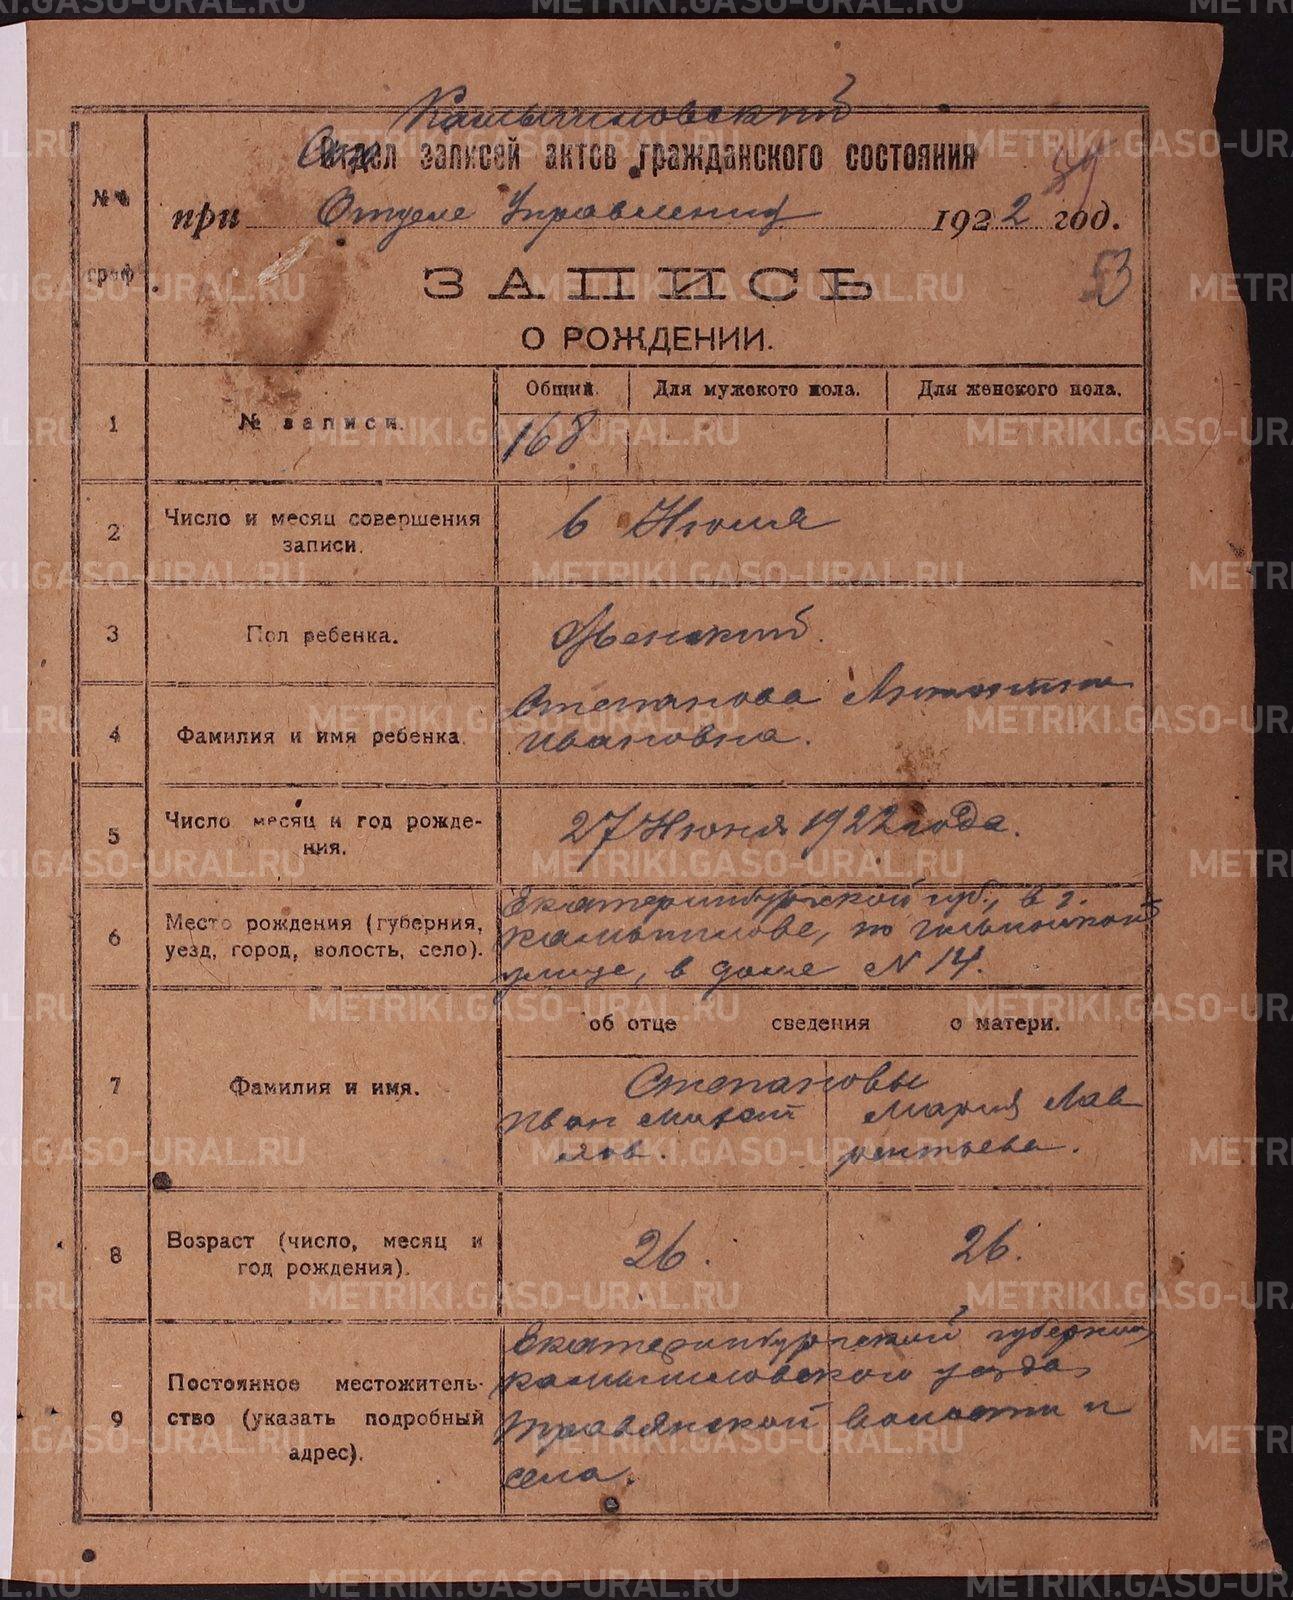 Камышловский
Отдел записей актов гражданского состояния
№№ граф.
при Отделе Управления 1922 год.
53
ЗАПИСЬ
О РОЖДЕНИИ.
Общий. Для мужского пола. Для женского пола.
1 № записи. 168
2 Число и месяц совершения
записи.
6 Июля
3 Пол ребенка. Женский.
4 Фамилия и имя ребенка.
Степанова Антонина
Ивановна.
5 Число месяц и год рожде-
ния.
27 Июня 1922 года.
6 Место рождения (губерния,
уезд, город, волость, село).
Екатеринбургской губ., в г.
Камышлове, по
улице, в доме N 14.
об отце сведения о матери.
7 Фамилия и имя.
Степановы
Иван Михай
лов.
Мария Лав
рентьева.
8 Возраст (число, месяц и
год рождения).
26. 26.
9 Постоянное местожитель-
ство (указать подробный
адрес).
Екатеринбургской губернии,
Камышловского уезда,
Травянской волости и
села.
METRIKI.GASO-URAL.RU